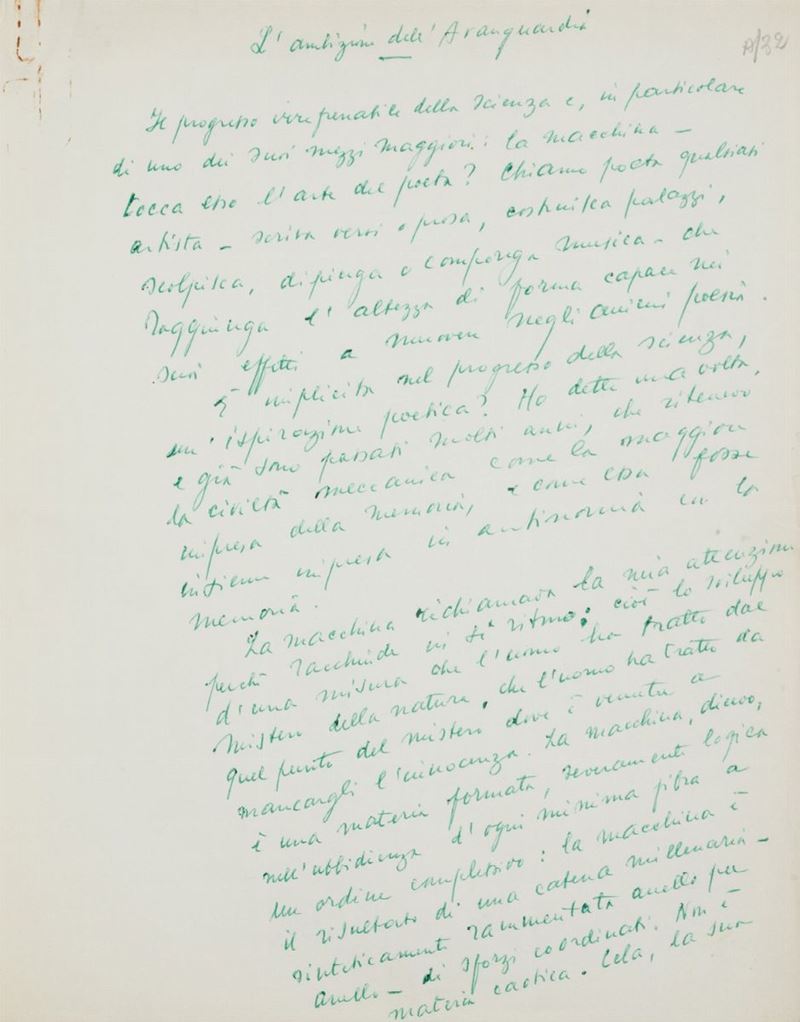 L'ambizione dell'Avanguardia
A/32
Il progresso irrefrenabile della scienza e, in particolare
di uno dei suoi mezzi maggiori: la macchina –
tocca esso l'arte del poeta? Chiamo poeta qualsiasi
artista – scriva versi o prosa, costruisca palazzi,
scolpisca, dipinga o componga musica – che
raggiunga l'altezza di forma capace nei
suoi effetti a muovere negli animi poesia.
È implicita nel progresso della scienza,
un'ispirazione poetica? Ho detto una volta,
e già sono passati molti anni, che ritenevo
la civiltà meccanica come la maggiore
impresa della memoria, e come essa fosse
insieme impresa in antinomia con la
memoria.
La macchina richiamava la mia attenzione
perché racchiude in sé ritmo: cioè lo sviluppo
d'una misura che l'uomo ha tratto dal
mistero della natura, che l'uomo ha tratto da
quel punto del mistero dove è venuta a
mancargli l'innocenza. La macchina, dicevo,
è una materia formata, severamente logica
nell'ubbidienza d'ogni minima fibra a
un ordine complessivo: la macchina è
il risultato di una catena millenaria –
sinteticamente rammentata anello per
anello – di sforzi coordinati. Non è
materia caotica. Cela, la sua